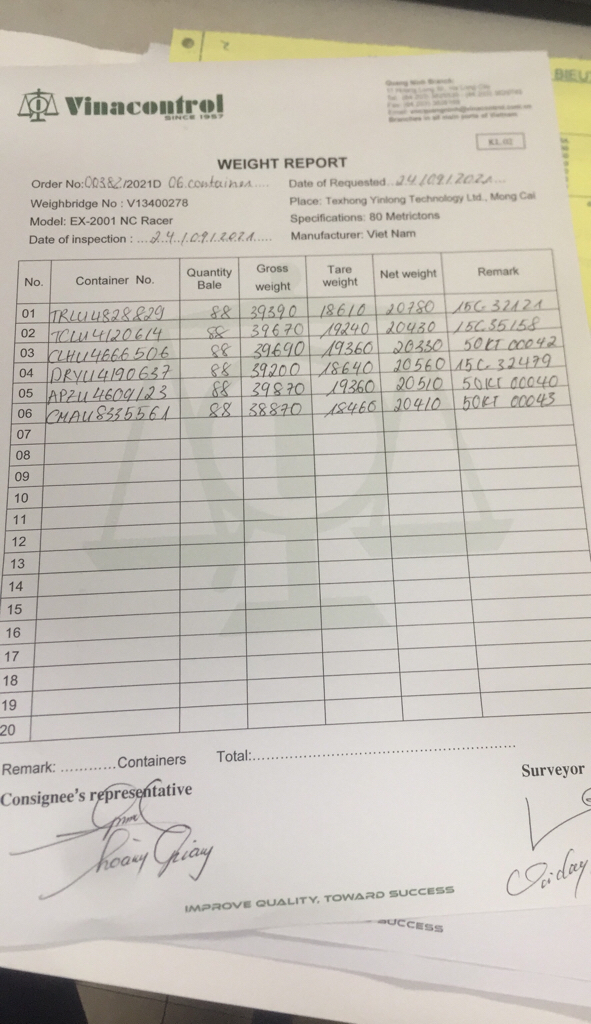 BIEU
Vinacontrol
SINCE 1957
Quang Ninh Branch:
Branches in all main parts of Vietnam
KL.02
WEIGHT REPORT
Order No:00382/2021D 06.container.... Date of Requested..24/09/2021...
Weighbridge No : V13400278 Place: Texhong Yinlong Technology Ltd., Mong Cai
Model: EX-2001 NC Racer Specifications: 80 Metrictons
Date of inspection : ...24/09/2021..... Manufacturer: Viet Nam
No. Container No. Quantity Bale Gross weight Tare weight Net weight Remark
01 TRLU4828829 88 39390 18610 20780 15C-32121
02 TCLU4120614 88 39670 19240 20430 15C35158
03 CLHU4666506 88 39690 19360 20330 50KT 00042
04 DRYU4190637 88 39200 18640 20560 15C-32479
05 APZU4609123 88 39870 19360 20510 50KT 00040
06 CMAU8335561 88 38870 18460 20410 50KT 00043
07
08
09
10
11
12
13
14
15
16
17
18
19
20
Remark: ............Containers Total:...............................................................
Consignee's representative Surveyor
Hoàng Giang
IMPROVE QUALITY, TOWARD SUCCESS
SUCCESS